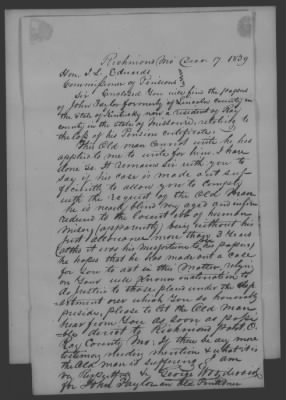 Richmond Mo Decr. 17 1839
Hon. J. L. Edwards
Commissioner of Pensions
Sir Enclosed You will find the papers
of John Taylor formerly of Lincoln County in
the State of Kentucky now a resident of Ray
county in the state of Missouri, relating to
the loss of his Pension certificate.
This Old man cannot write he has
applied to me to write for him I have
done so. It remains Sir with you to
say if his case is made out suf-
ficiently to allow you to comply
with the request of the Old man
he is nearly blind very aged and infirm
reduced to the lowest ebb of human
misery (apparently) being without his
just allowance more than a year
he hopes that he has made out a case
for You to act in this Matter, relying
on Your well known inclination to
do Justice to those plans under the Dep
artment over which You so honorably
preside, please to let the Old Man
hear from You as soon as possi
bly direct to Richmond post O.
Ray County Mo. If there be any more
testimony needed mention what it is
the Old man is suffering, I am
Sir Respectfuly George Woodward
for John Taylor an Old Pensioner